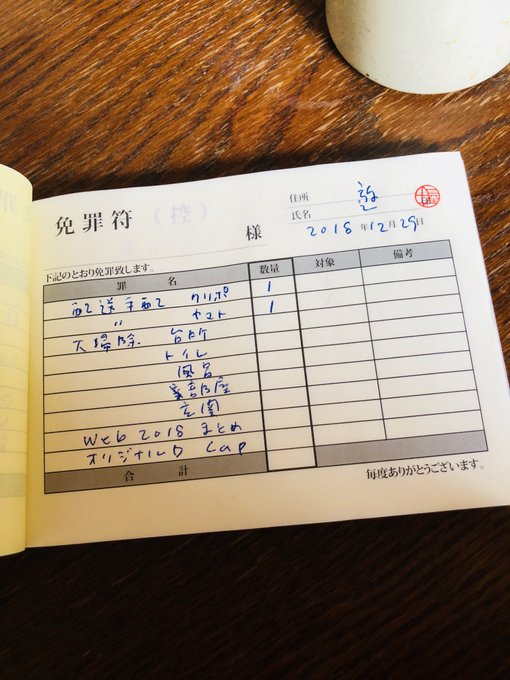 免罪符
(控)
様
住所
氏名
2018年12月29日
下記のとおり免罪致します。
罪名 数量 対象 備考
配送手配 クリポ 1
〃 ヤマト 1
大掃除 台所
トイレ
風呂
玄関
Web 2018 まとめ
オリジナル Cap
合計
毎度ありがとうございます。